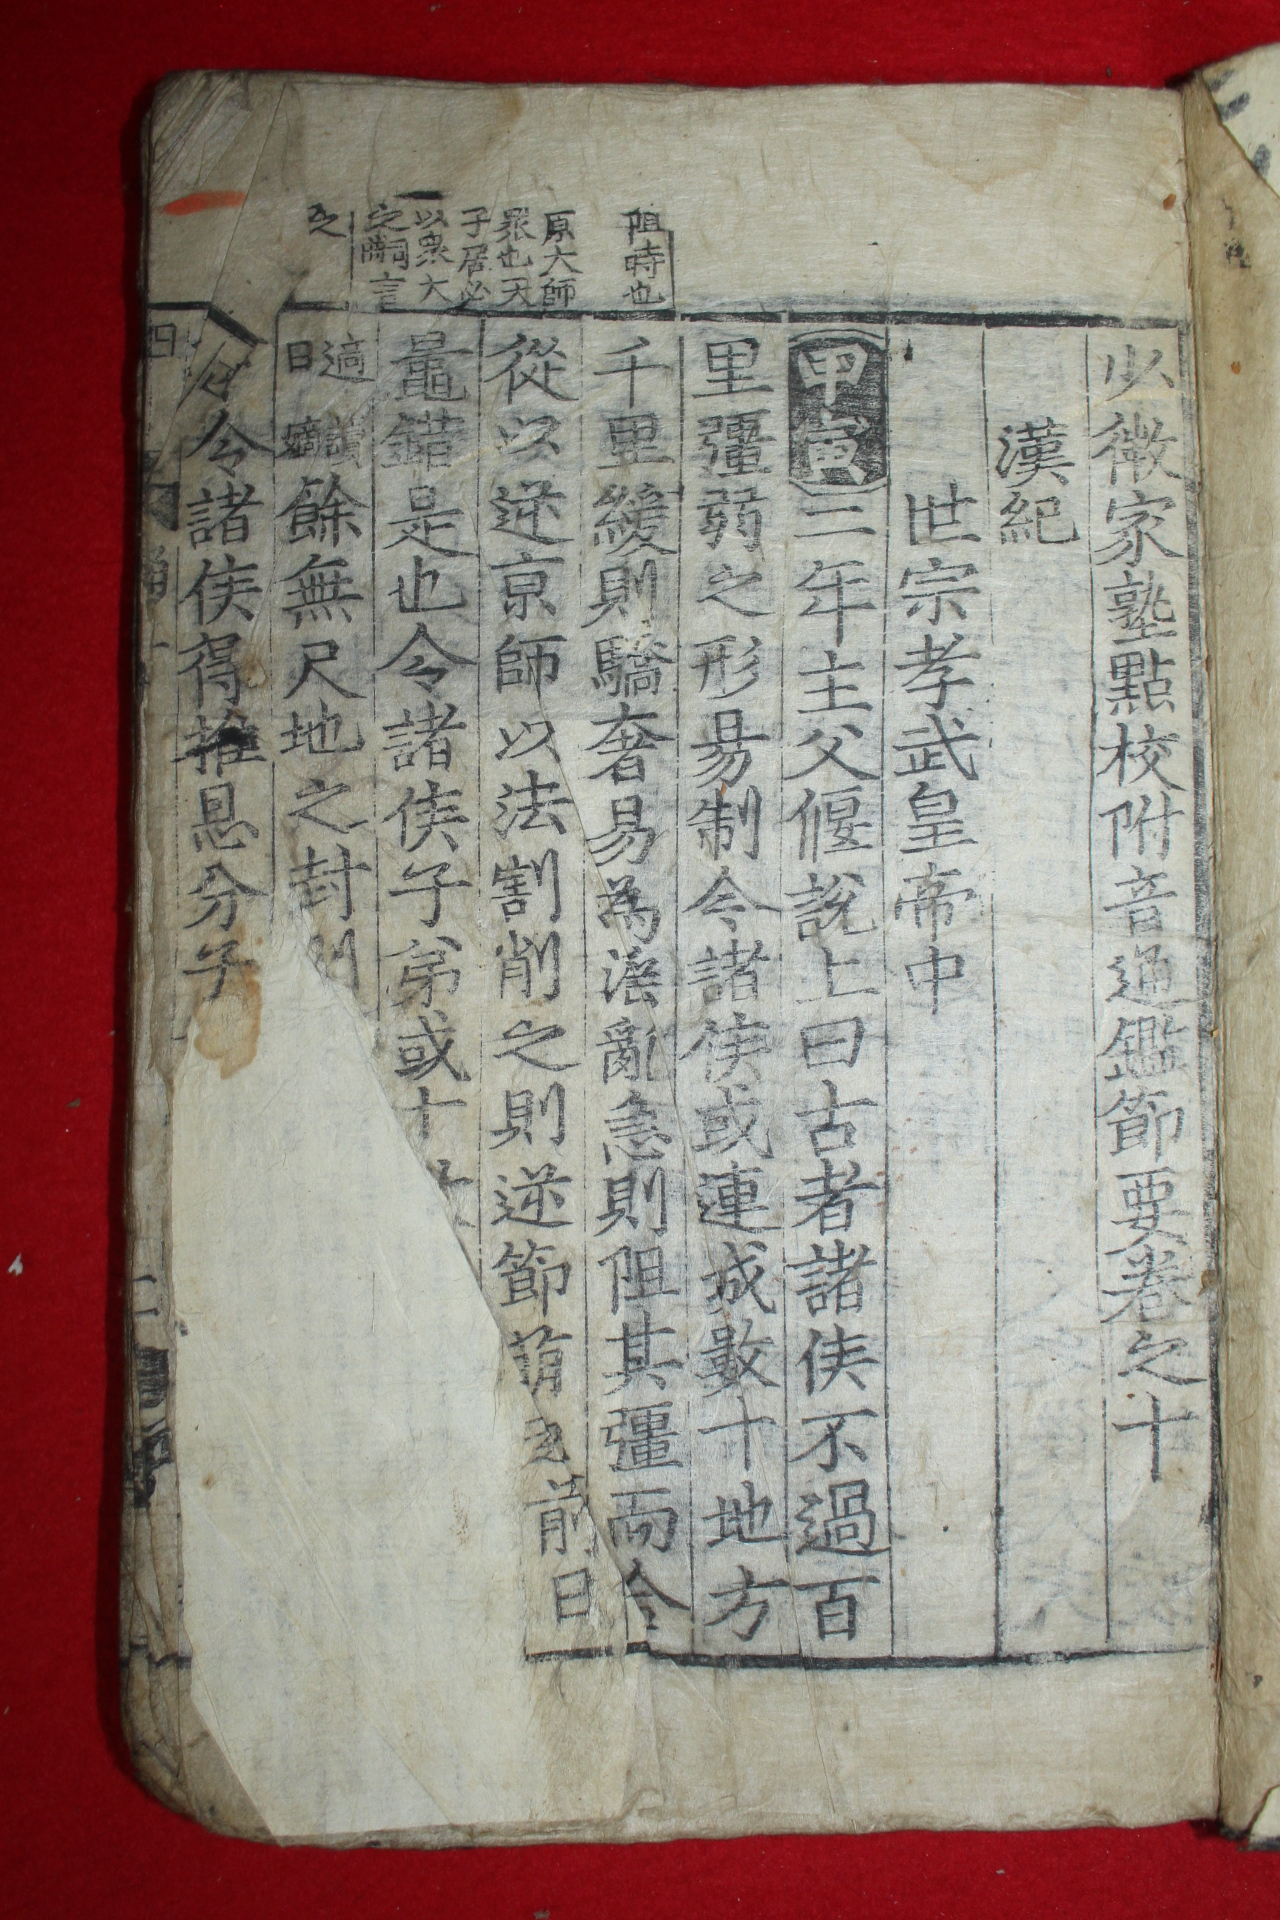 少微家塾點校附音通鑑節要卷之十
漢紀
世宗孝武皇帝中
甲寅二年主父偃說上曰古者諸侯不過百
里彊弱之形昜制今諸侯或連成數十地方
千里緩則驕奢易為淫亂急則阻其彊而合
從以逆京師以法割削之則逆節萌起前日
鼂錯是也今諸侯子弟或十
適嗣餘無尺地之封則
令諸侯得推恩分子
阻時也
原大師
衆也天
子居必
以衆大
之詞言
之